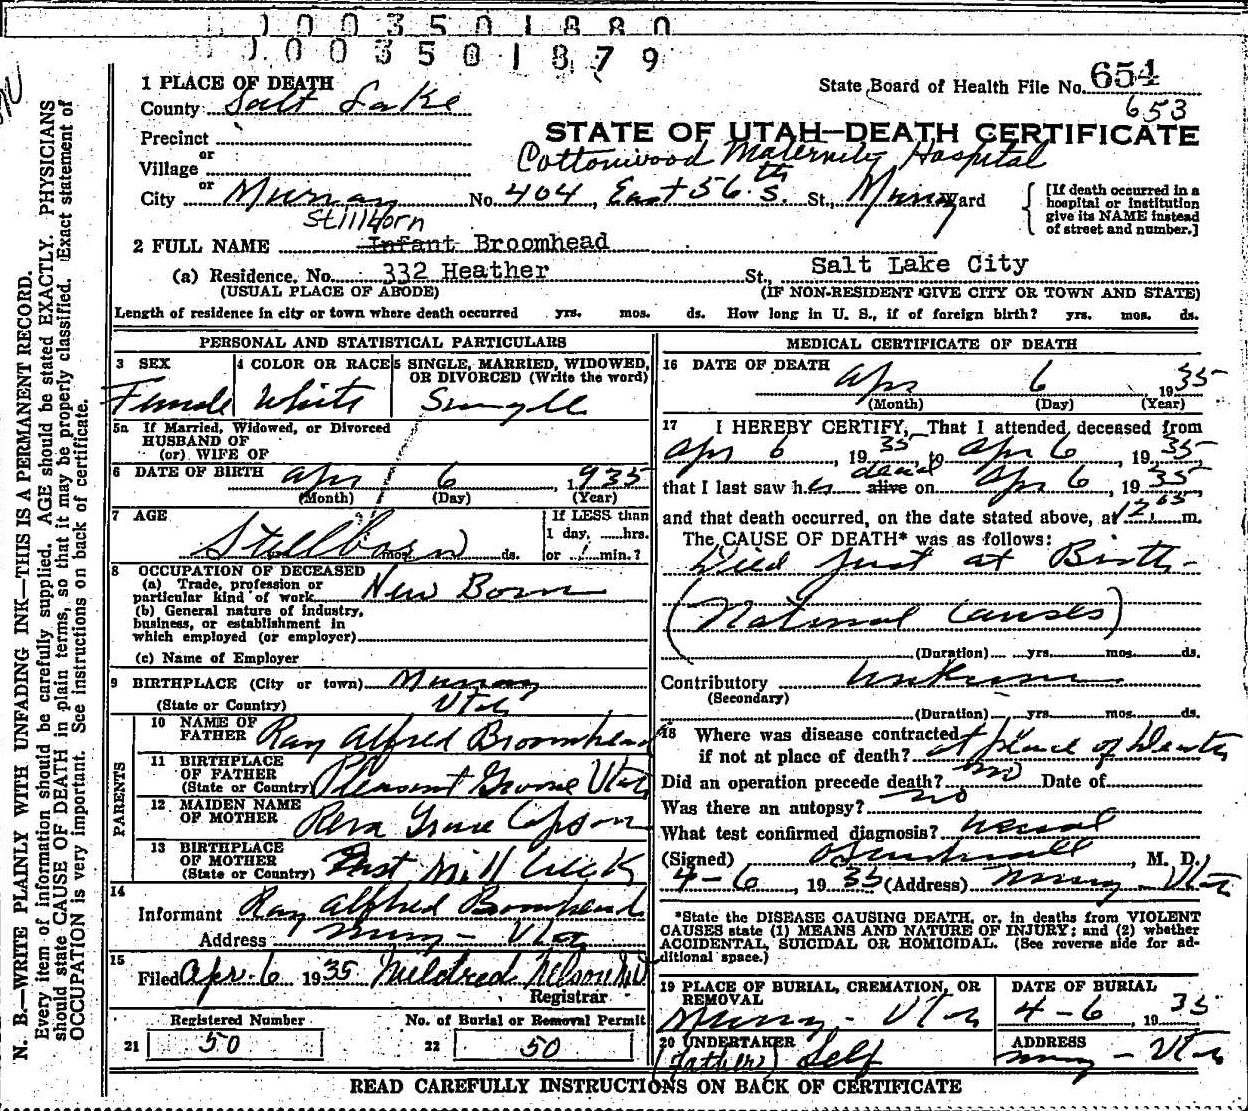 1003501880
1003501879
1 PLACE OF DEATH
County Salt Lake
State Board of Health File No. 654
653
Precinct
or
Village
or
City Murray
STATE OF UTAH—DEATH CERTIFICATE
Cottonwood Maternity Hospital
No. 404, East 56th S. St., Murray Ward
[If death occurred in a hospital or institution give its NAME instead of street and number.]
Stillborn
2 FULL NAME Infant Broomhead
(a) Residence. No. 332 Heather St., Salt Lake City
(USUAL PLACE OF ABODE) (IF NON-RESIDENT GIVE CITY OR TOWN AND STATE)
Length of residence in city or town where death occurred yrs. mos. ds. How long in U. S., if of foreign birth? yrs. mos. ds.
PERSONAL AND STATISTICAL PARTICULARS
3 SEX
Female
4 COLOR OR RACE
White
5 SINGLE, MARRIED, WIDOWED, OR DIVORCED (Write the word)
Single
5a If Married, Widowed, or Divorced
HUSBAND OF
(or) WIFE OF
6 DATE OF BIRTH Apr 6, 1935
(Month) (Day) (Year)
7 AGE
Stillborn
mos. ds.
If LESS than
1 day, ......hrs.
or ......min.?
8 OCCUPATION OF DECEASED
(a) Trade, profession or
particular kind of work New Born
(b) General nature of industry,
business, or establishment in
which employed (or employer)
(c) Name of Employer
9 BIRTHPLACE (City or town) Murray
(State or Country) Utah
PARENTS
10 NAME OF FATHER Ray Alfred Broomhead
11 BIRTHPLACE OF FATHER (State or Country) Pleasant Grove Utah
12 MAIDEN NAME OF MOTHER Reva Grace Capson
13 BIRTHPLACE OF MOTHER (State or Country) East Mill Creek
14
Informant Ray Alfred Broomhead
Address Murray - Utah
15
Filed Apr. 6 1935 Mildred Nelson
Registrar
Registered Number
21 50
No. of Burial or Removal Permit
22 50
MEDICAL CERTIFICATE OF DEATH
16 DATE OF DEATH Apr 6 1935
(Month) (Day) (Year)
17 I HEREBY CERTIFY, That I attended deceased from
Apr 6, 1935, to Apr 6, 1935,
that I last saw h er alive on Apr 6, 1935,
and that death occurred, on the date stated above, at 12.05 m.
The CAUSE OF DEATH* was as follows:
Died just at Birth -
(Natural Causes)
(Duration) yrs. mos. ds.
Contributory Unknown
(Secondary)
(Duration) yrs. mos. ds.
18 Where was disease contracted
if not at place of death? at place of Death
Did an operation precede death? no Date of
Was there an autopsy? no
What test confirmed diagnosis?
(Signed) , M. D.
4-6, 1935 (Address) Murray - Utah
*State the DISEASE CAUSING DEATH, or, in deaths from VIOLENT
CAUSES state (1) MEANS AND NATURE OF INJURY; and (2) whether
ACCIDENTAL, SUICIDAL OR HOMICIDAL. (See reverse side for ad-
ditional space.)
19 PLACE OF BURIAL, CREMATION, OR REMOVAL
Murray - Utah
DATE OF BURIAL
4-6, 1935
20 UNDERTAKER
(father) Self
ADDRESS
Murray - Utah
READ CAREFULLY INSTRUCTIONS ON BACK OF CERTIFICATE
N. B.—WRITE PLAINLY WITH UNFADING INK—THIS IS A PERMANENT RECORD.
Every item of information should be carefully supplied. AGE should be stated EXACTLY. PHYSICIANS
should state CAUSE OF DEATH in plain terms, so that it may be properly classified. Exact statement of
OCCUPATION is very important. See instructions on back of certificate.